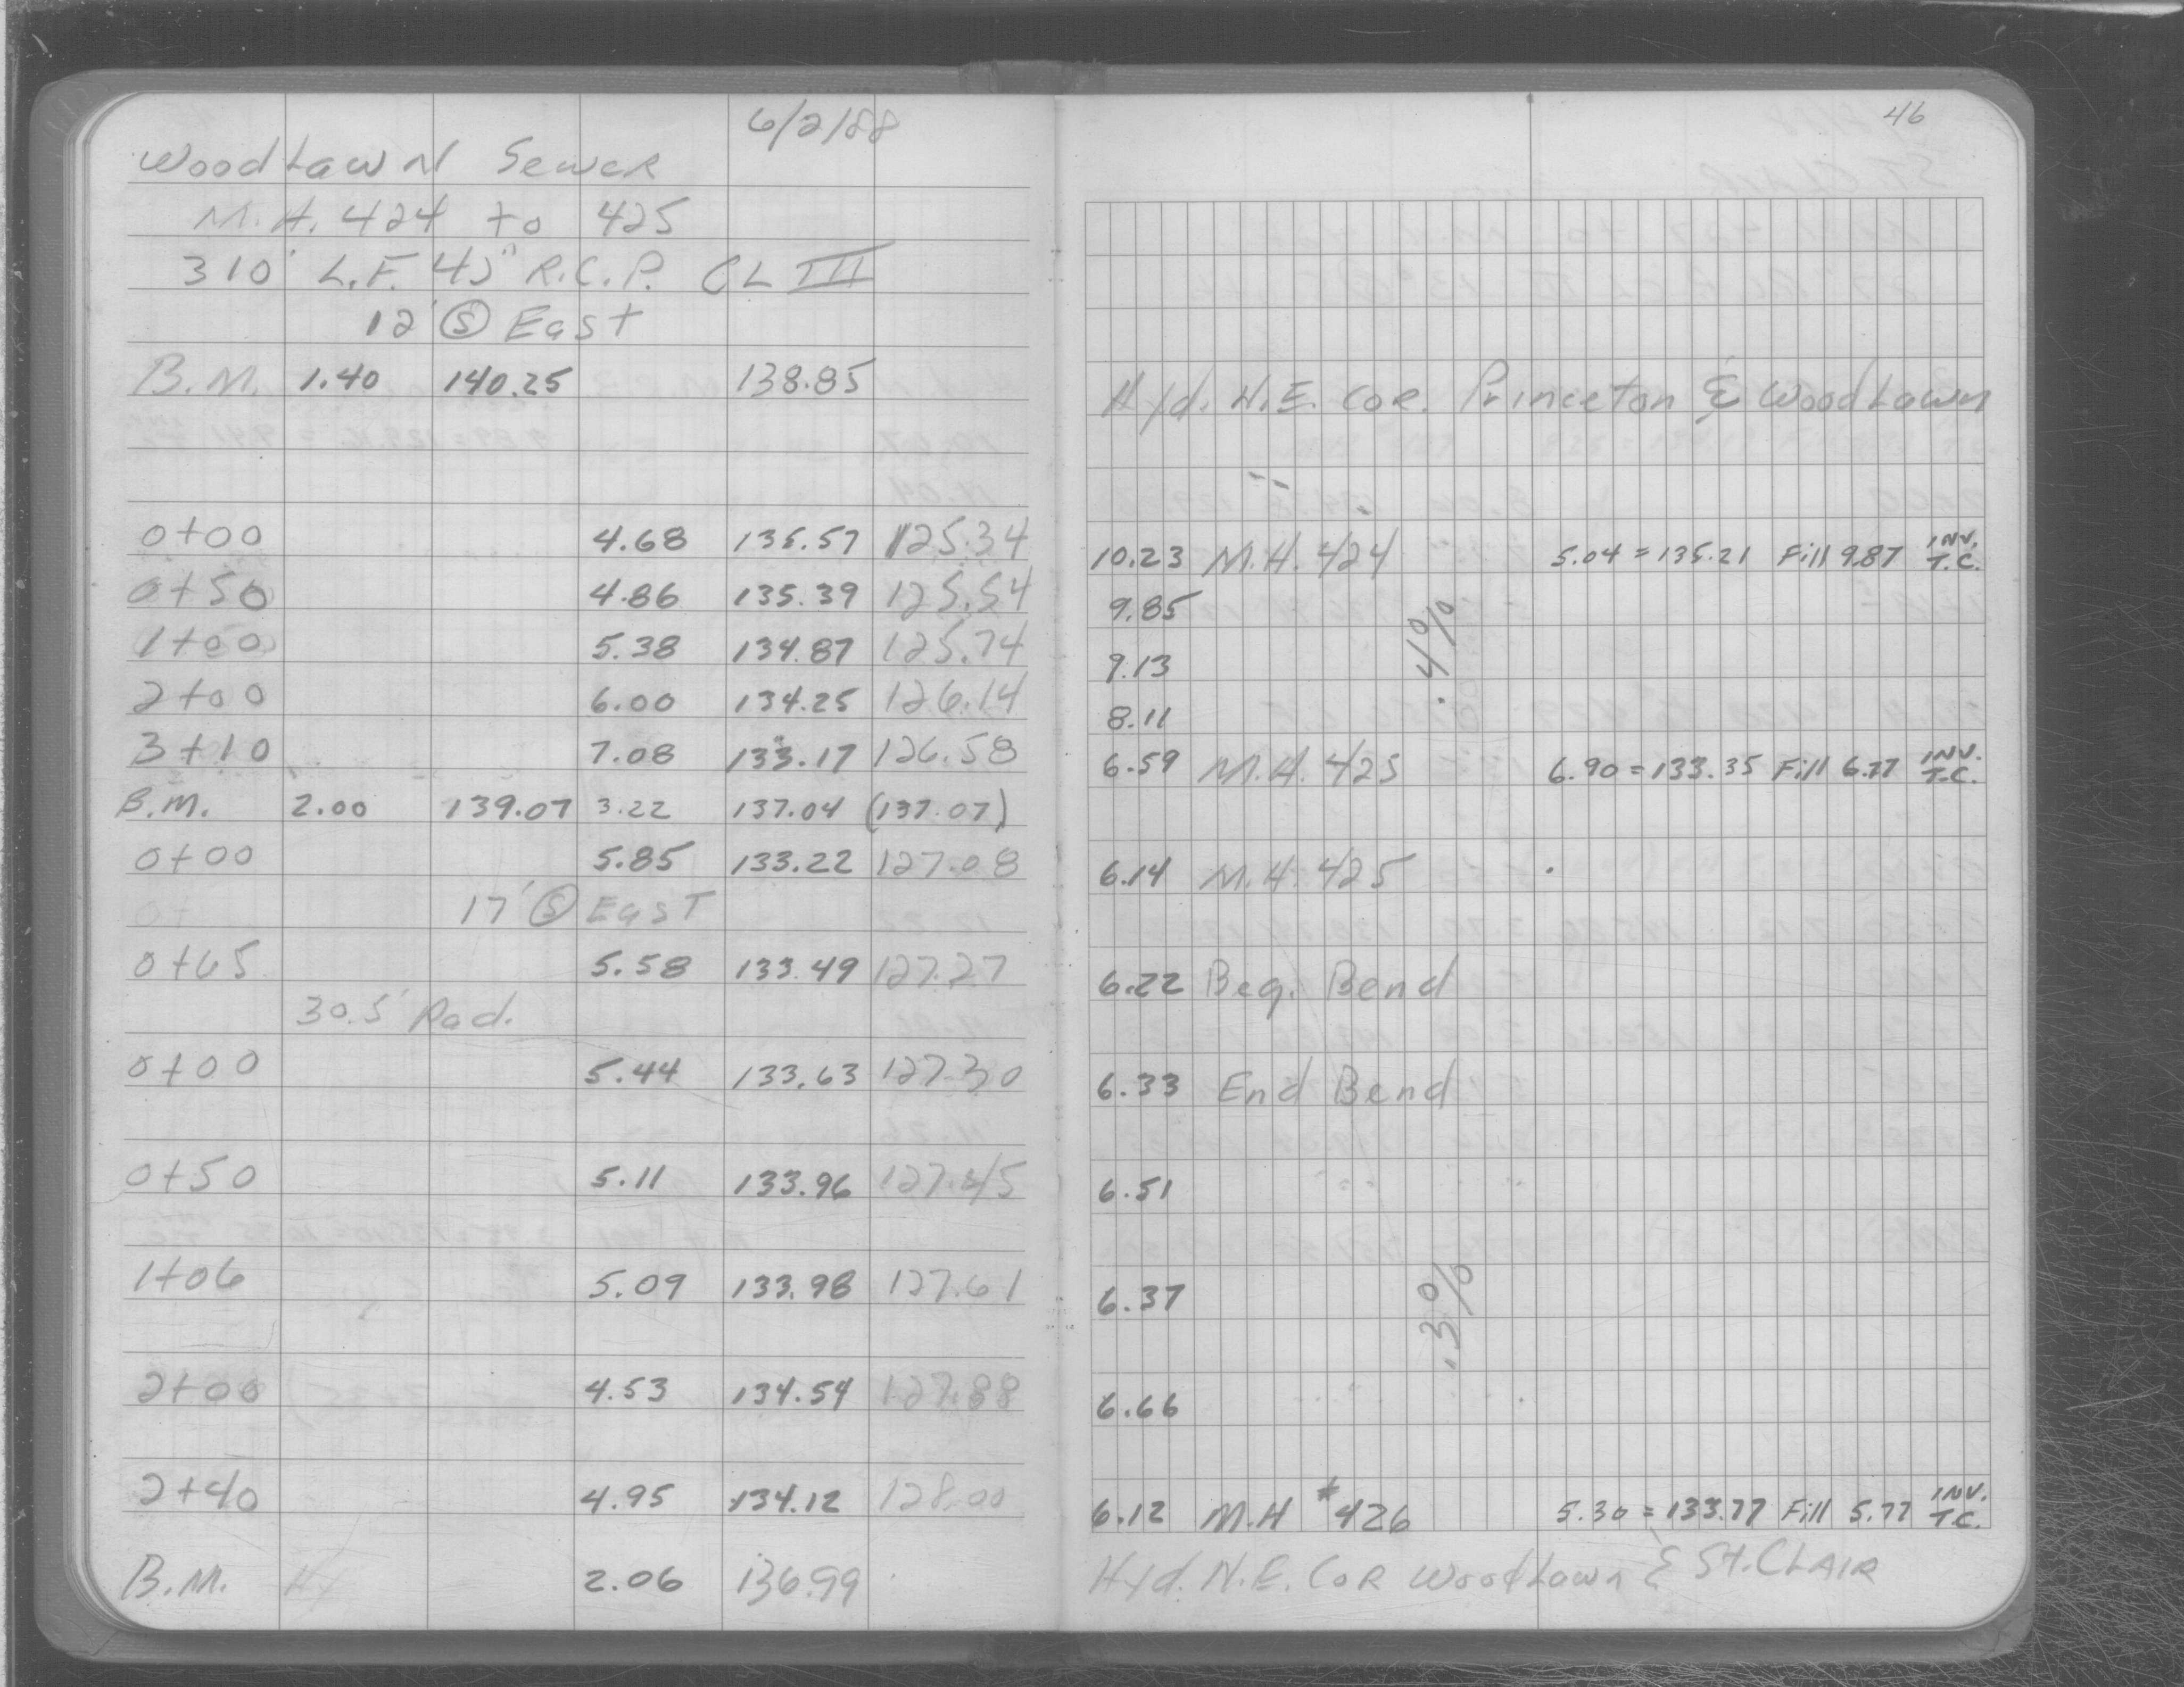 6/2/88
WoodLawN Sewer
M.H. 424 to 425
310' L.F. 45" R.C.P. CL III
12' Ⓢ East
B.M. 1.40 140.25 138.85
0+00 4.68 135.57 125.34
0+50 4.86 135.39 125.54
1+00 5.38 134.87 125.74
2+00 6.00 134.25 126.14
3+10 7.08 133.17 126.58
B.M. 2.00 139.07 3.22 137.04 (137.07)
0+00 5.85 133.22 127.08
17' Ⓢ East
0+65 5.58 133.49 127.27
30.5' Rad.
0+00 5.44 133.63 127.30
0+50 5.11 133.96 127.45
1+06 5.09 133.98 127.61
2+00 4.53 134.54 127.88
2+40 4.95 134.12 128.00
B.M. Hy 2.06 136.99
46
Hyd. N.E. Cor. Princeton & WoodLawn
10.23 M.H. 424 5.04 = 135.21 Fill 9.87 INV. T.C.
9.85
.4%
9.13
8.11
6.59 M.H. 425 6.90 = 133.35 Fill 6.77 INV. T.C.
6.14 M.H. 425
6.22 Beg. Bend
6.33 End Bend
6.51
6.37
.3%
6.66
6.12 M.H #426 5.30 = 133.77 Fill 5.77 INV. T.C.
Hyd. N.E. Cor WoodLawn & St. CLAIR